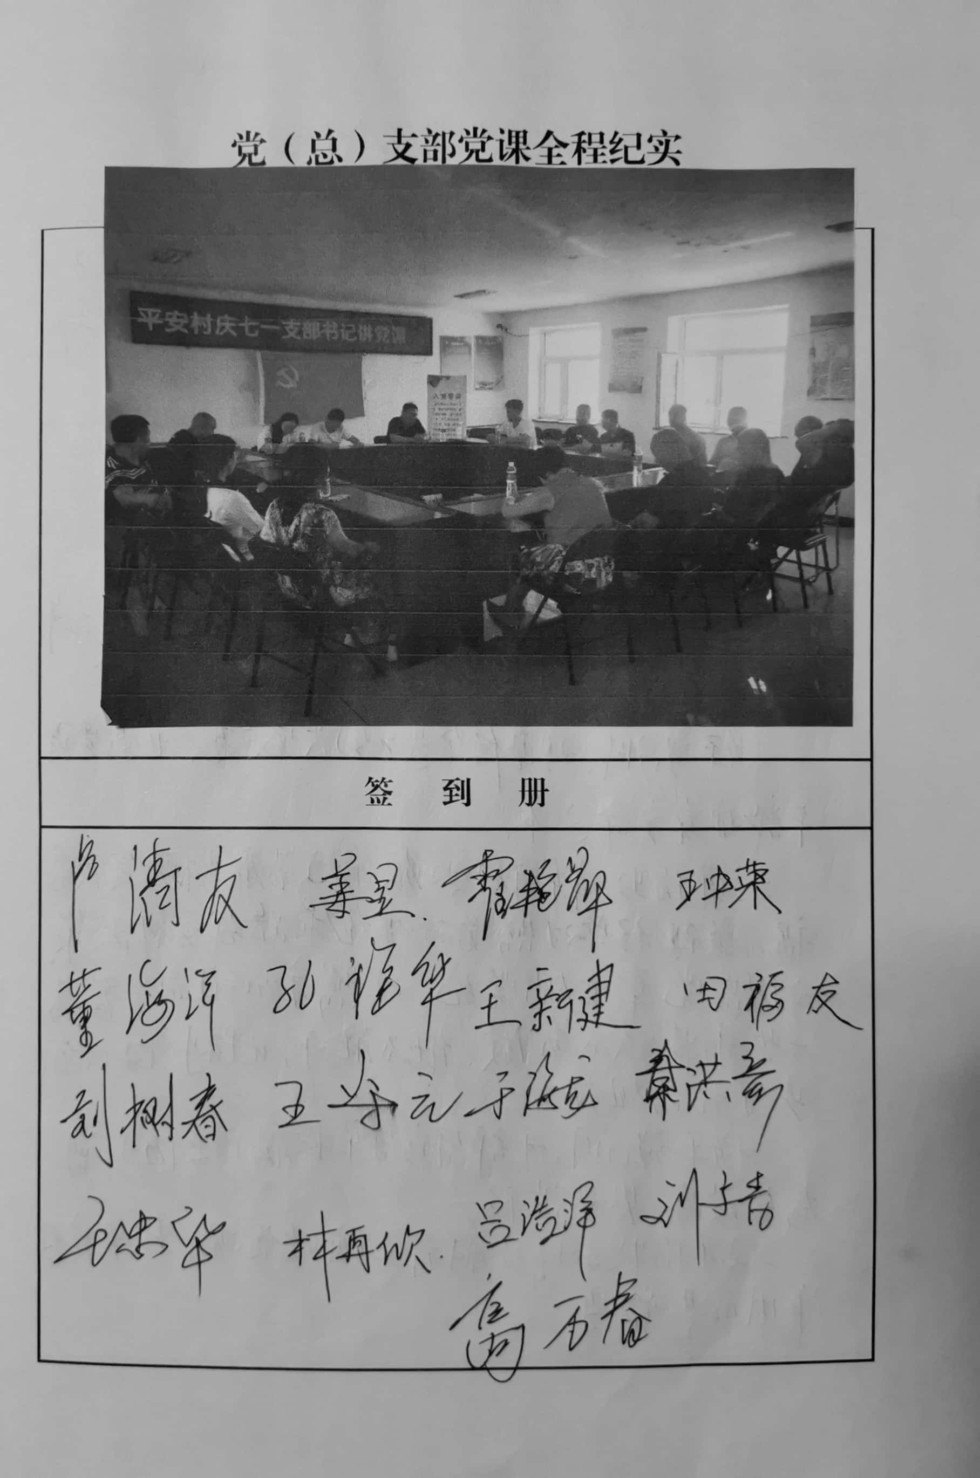 党（总）支部党课全程纪实
平安村庆七一支部书记讲党课
签到册
卢清友 姜昱 霍艳辉 王中荣
董海洋 孔祥华 王新建 田福友
刘树春 王学元 于海龙 秦洪彦
王忠华 林再欣 吕浩洋 刘青
高万春